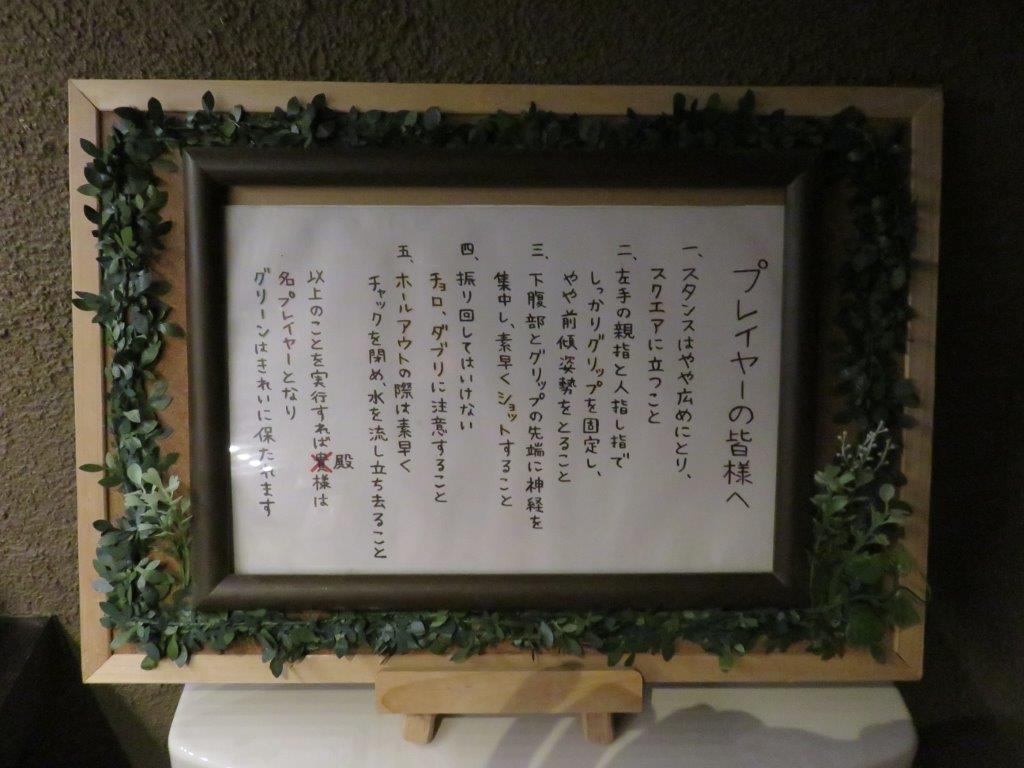 プレイヤーの皆様へ
一、スタンスはやや広めにとり、
スクエアに立つこと
二、左手の親指と人指し指で
しっかりグリップを固定し、
やや前傾姿勢をとること
三、下腹部とグリップの先端に神経を
集中し、素早くショットすること
四、振り回してはいけない
チョロ、ダブリに注意すること
五、ホールアウトの際は素早く
チャックを閉め、水を流し立ち去ること
以上のことを実行すれば殿様は
名プレイヤーとなり
グリーンはきれいに保たれます